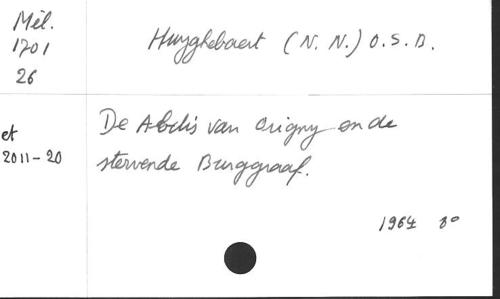 Mél.
1701
26
Huyghebaert (N. N.) O. S. B.
et
2011-20
De Abdis van Origny en de
stervende Burggraaf.
1964 8°